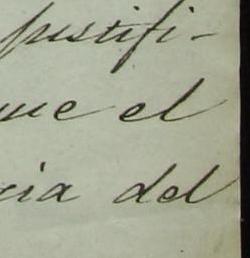 justifi-
que el
cia del